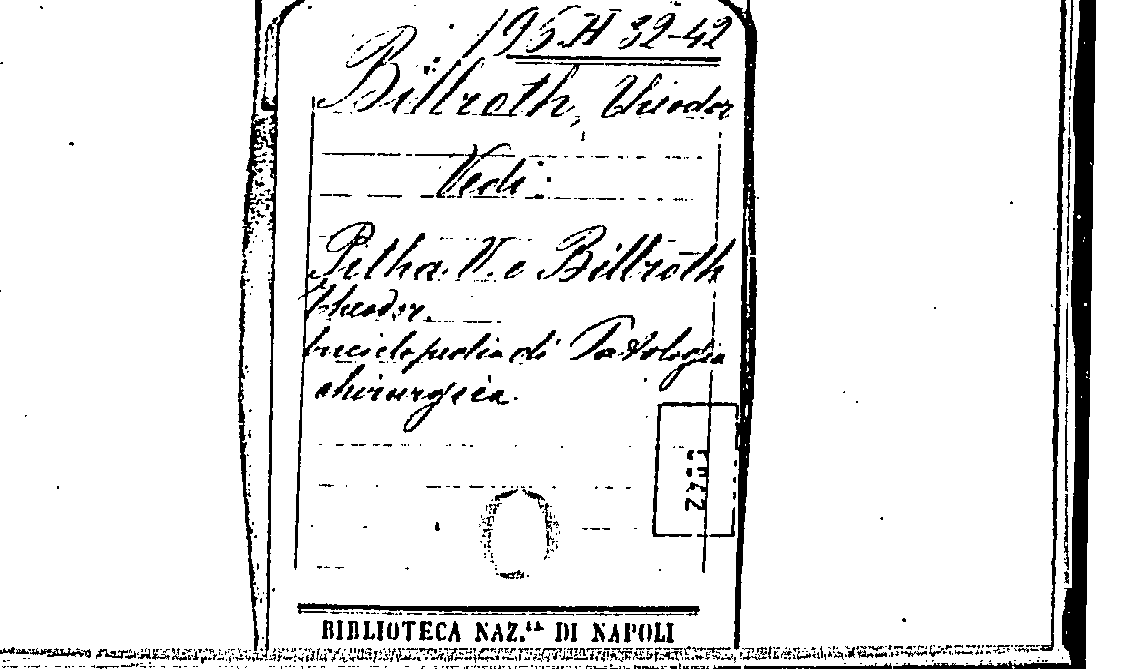 195.H 32-42
Billroth, Theodor
Vedi:
Pitha V. e Billroth
Theodor.
Enciclopedia di Patologia
chirurgica.
BIBLIOTECA NAZ.LE DI NAPOLI